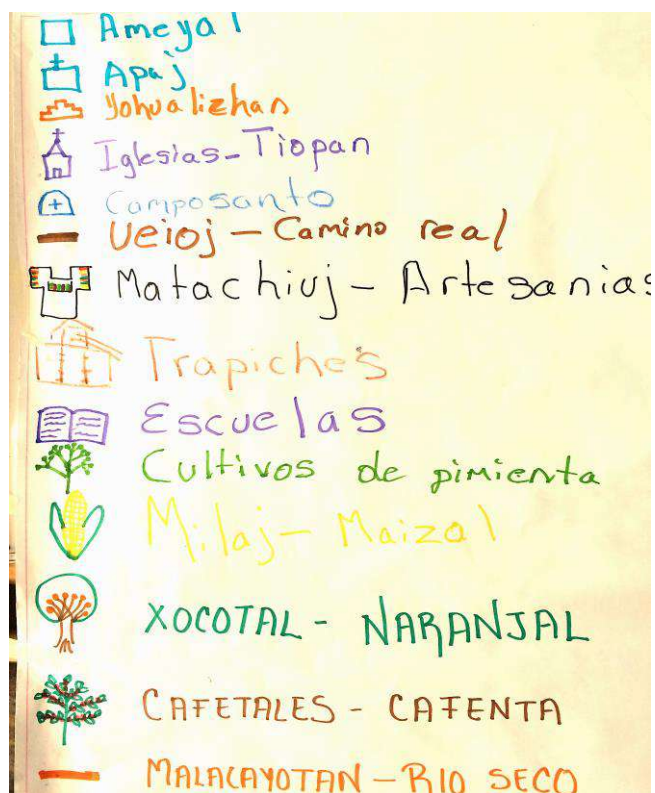 Ameyal
Apaj
Yohualizhan
Iglesias-Tiopan
Camposanto
Ueioj - Camino real
Matachiuj - Artesanias
Trapiches
Escuelas
Cultivos de pimienta
Milaj - Maizal
XOCOTAL - NARANJAL
CAFETALES - CAFENTA
MALACAYOTAN - RIO SECO